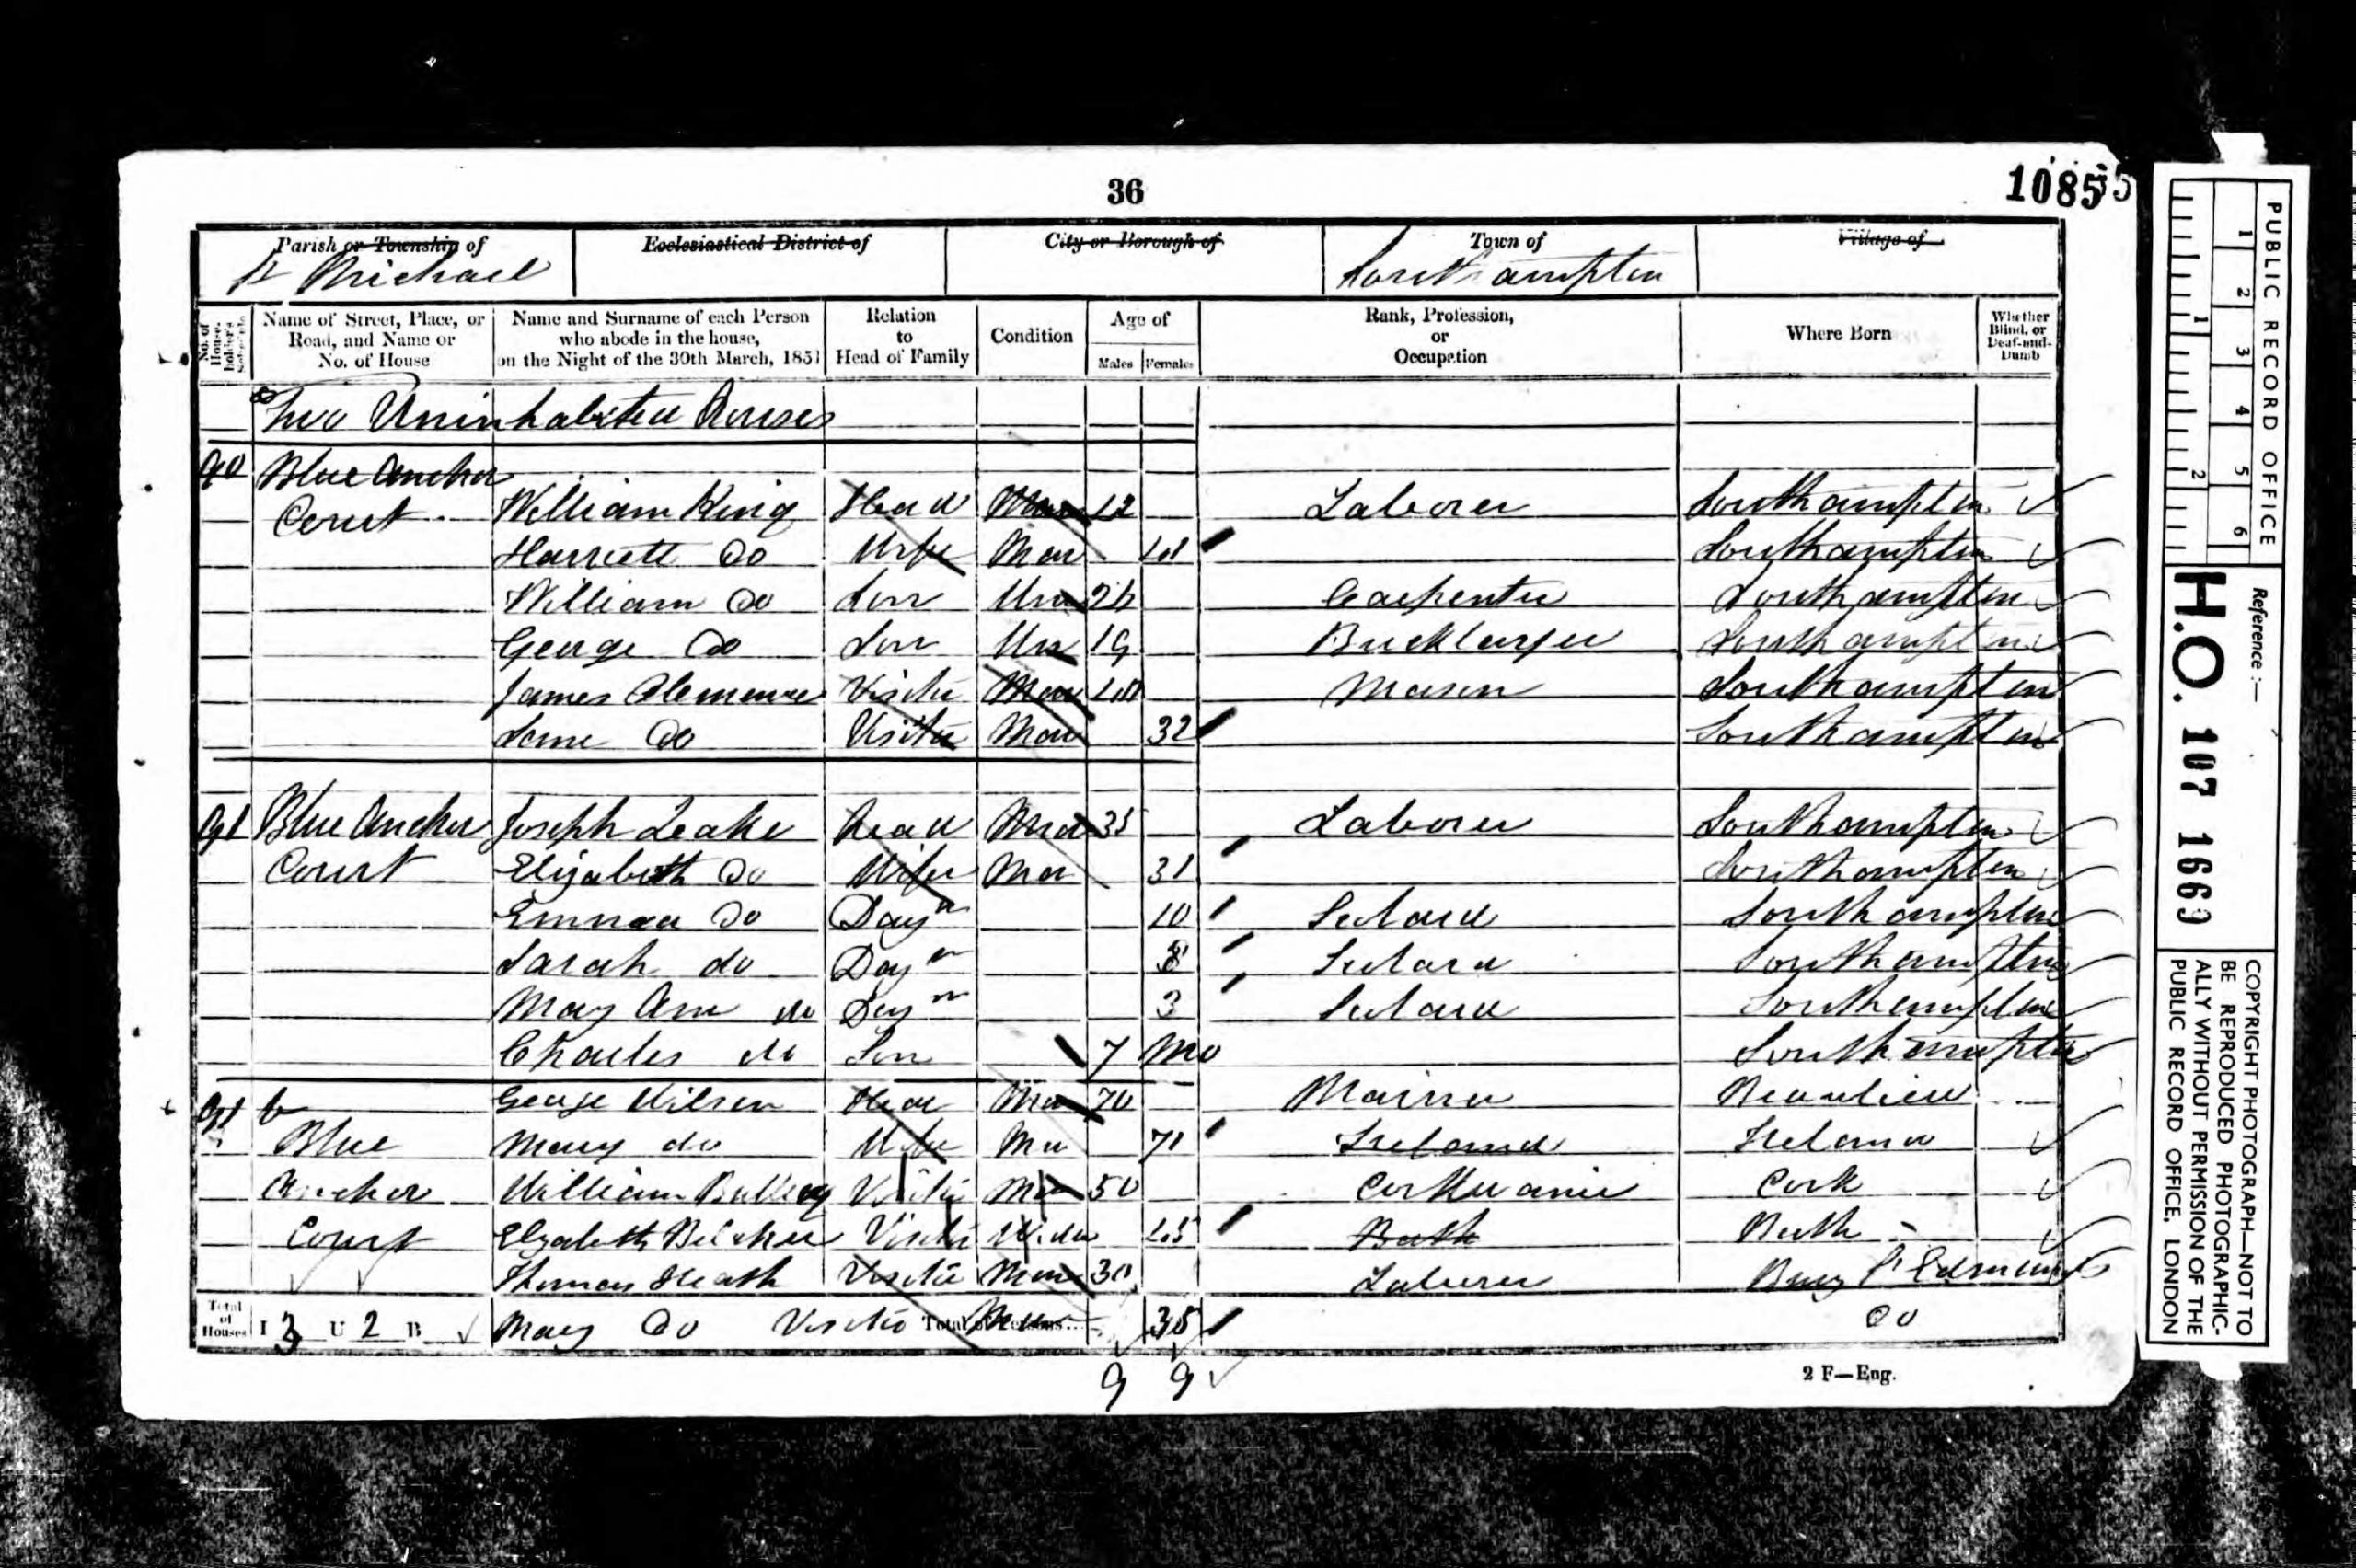 36
1085
Parish or Township of
Ecclesiastical District of
City or Borough of
Town of
Village of
St Michael
Southampton
No. of House-holder's Schedule
Name of Street, Place, or Road, and Name or No. of House
Name and Surname of each Person who abode in the house, on the Night of the 30th March, 1851
Relation to Head of Family
Condition
Age of
Males Females
Rank, Profession, or Occupation
Where Born
Whether Blind, or Deaf-and-Dumb
Two Uninhabited Houses
90 Blue Anchor
Court William King Head Mar 42 Laborer Southampton
Harriett Do Wife Mar Southampton
William Do Son Un 26 Carpenter Southampton
George Do Son Un 19 Bricklayer Southampton
James Visitor Mar Mason Southampton
Do Visitor Mar 32 Southampton
91 Blue Anchor Joseph Leake Head Mar 35 Laborer Southampton
Court Elizabeth Do Wife Mar 31 Southampton
Emma Do 10 Southampton
Sarah do 8 Southampton
Mary Ann do 3 Southampton
Charles do Son 7 Mo Southampton
91 George Wilson Head Mar 70 Beaulieu
Blue Mary do Wife Mar 71 Ireland Ireland
Anchor William Visitor Mar 50 Cork
Court Elizabeth Visitor 45 Bath Bath
Thomas Heath Visitor Mar 30 Laborer Bury St Edmunds
Total of Houses I 3 U 2 B Mary Do Visitor Total of Persons... Mar 35 Do
9 9
2 F—Eng.
PUBLIC RECORD OFFICE
1 2 3 4 5 6
1 2
Reference:—
H.O. 107 1669
COPYRIGHT PHOTOGRAPH—NOT TO
BE REPRODUCED PHOTOGRAPHIC-
ALLY WITHOUT PERMISSION OF THE
PUBLIC RECORD OFFICE, LONDON